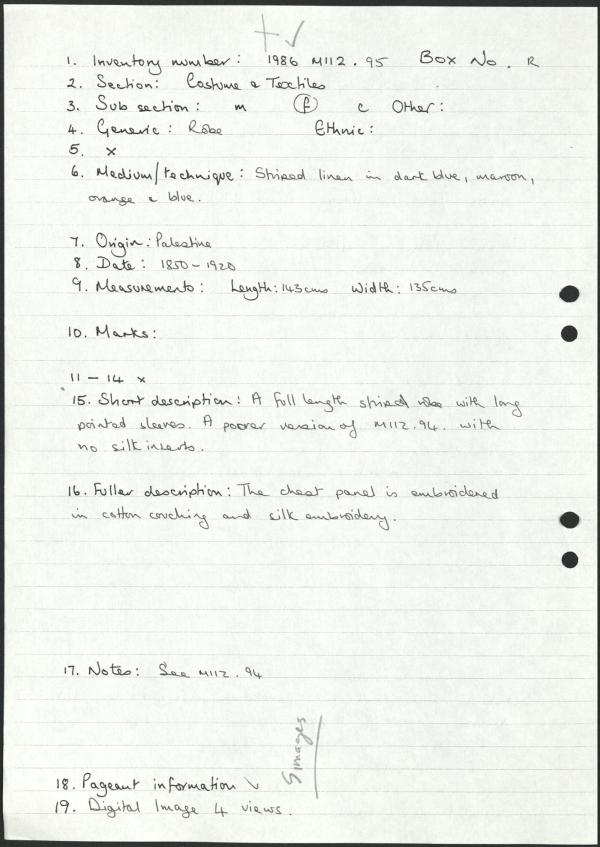 1. Inventory number: 1986 M112.95 Box No. R
2. Section: Costume & Textiles
3. Sub section: m f c Other:
4. Generic: Robe Ethnic:
5. x
6. Medium/technique: Striped linen in dark blue, maroon,
orange & blue.
7. Origin: Palestine
8. Date: 1850-1920
9. Measurements: Length: 143cms Width: 135cms
10. Marks:
11 - 14 x
15. Short description: A full length striped robe with long
pointed sleeves. A poorer version of M112.94. with
no silk inserts.
16. Fuller description: The chest panel is embroidered
in cotton couching and silk embroidery.
17. Notes: See M112.94
images
18. Pageant information ✓
19. Digital Image 4 views.